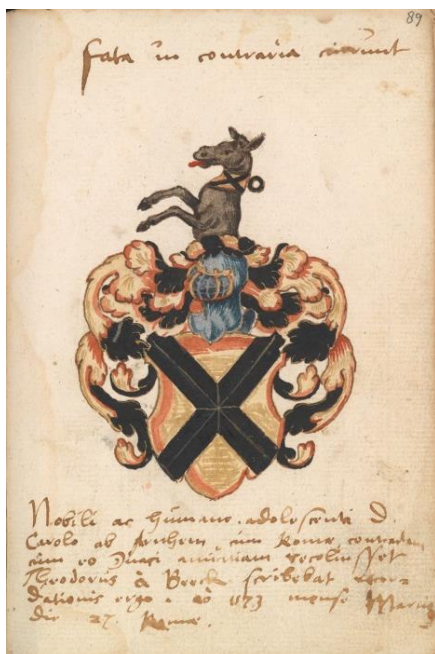 89
fata in contraria
Nobili ac humano adolescenti D
Carolo ab Arnhem cum Romæ contractam
cum eo Duaci amicitiam recoluisset
Theodorus à Broeck scribebat recor-
dationis ergo. aō 1573 mense Martij
die 27. Romæ.